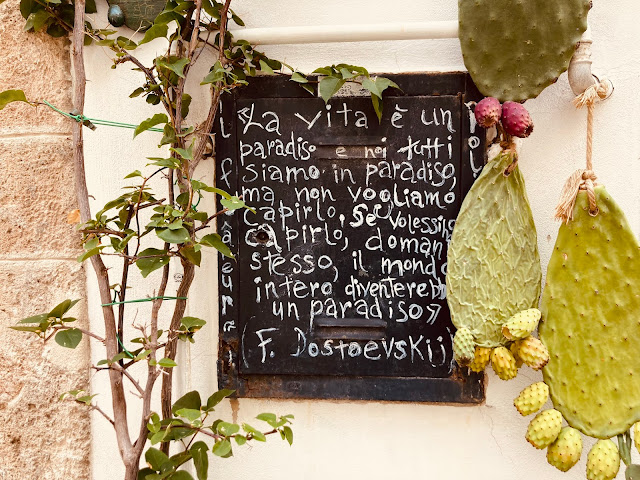 «La vita è un
paradiso e noi tutti
siamo in paradiso,
ma non vogliamo
capirlo, se volessimo
capirlo, domani
stesso, il mondo
intero diventerebbe
un paradiso»
F. Dostoevskij